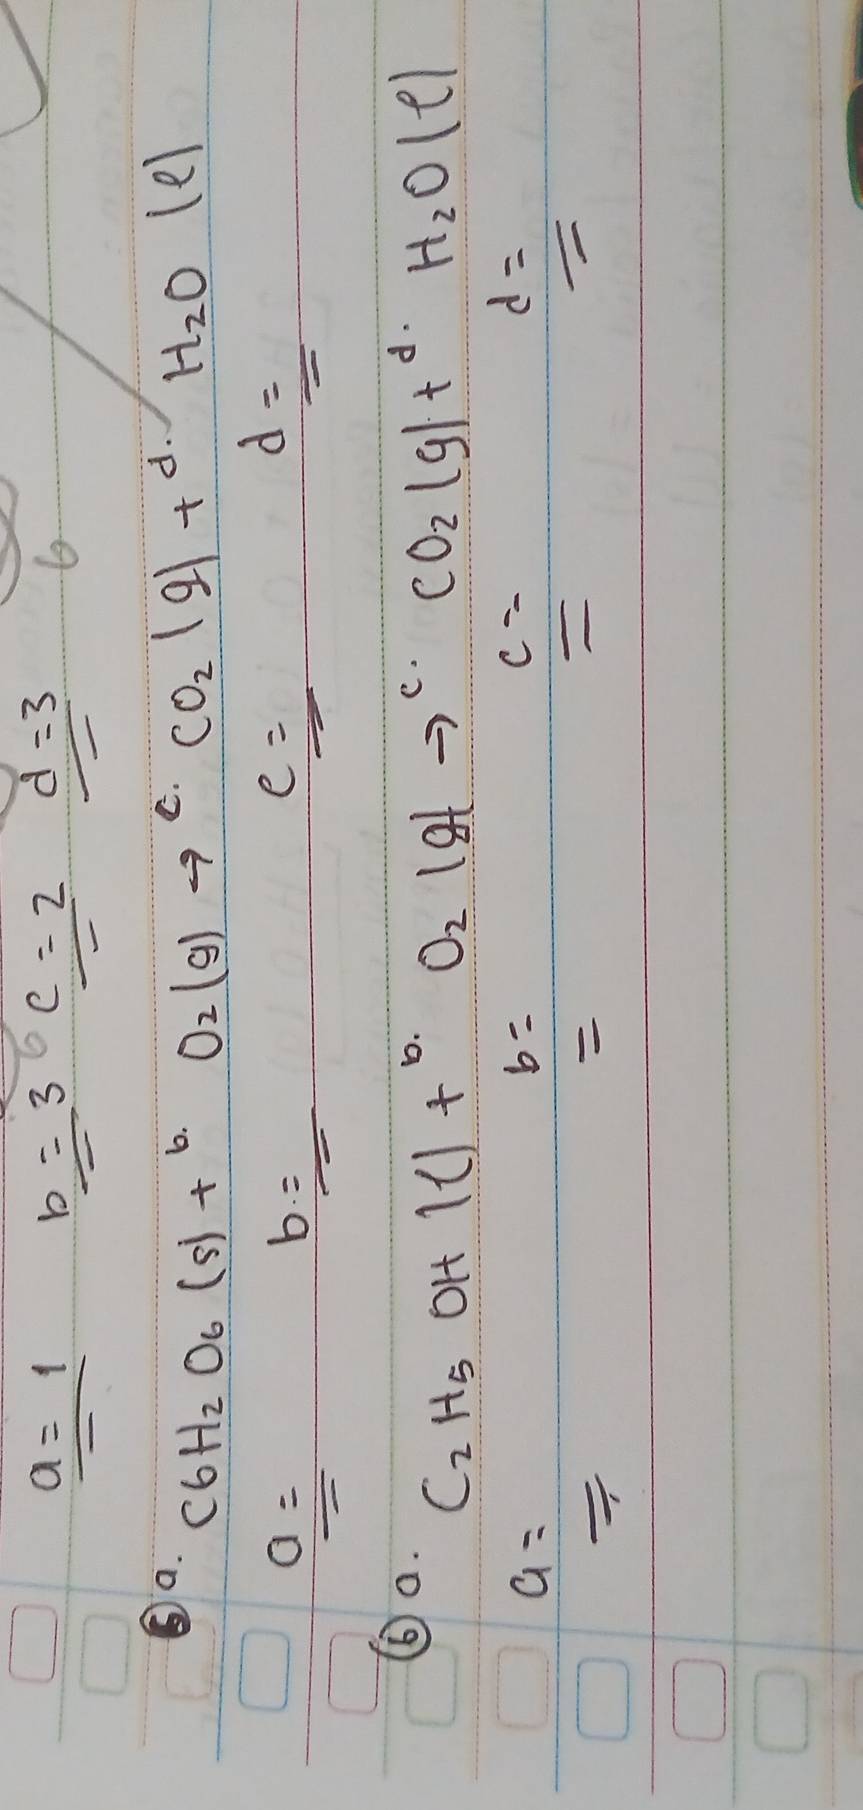 a = 1 b = 3 c = 2 d = 3
6 6
5 a. C6H2O6 (s) + b. O2 (g) → c. CO2 (g) + d. H2O (l)
a = b = c = d =
6 a. C2H5OH (l) + b. O2 (g) → c. CO2 (g) + d. H2O (l)
a = b = c = d =